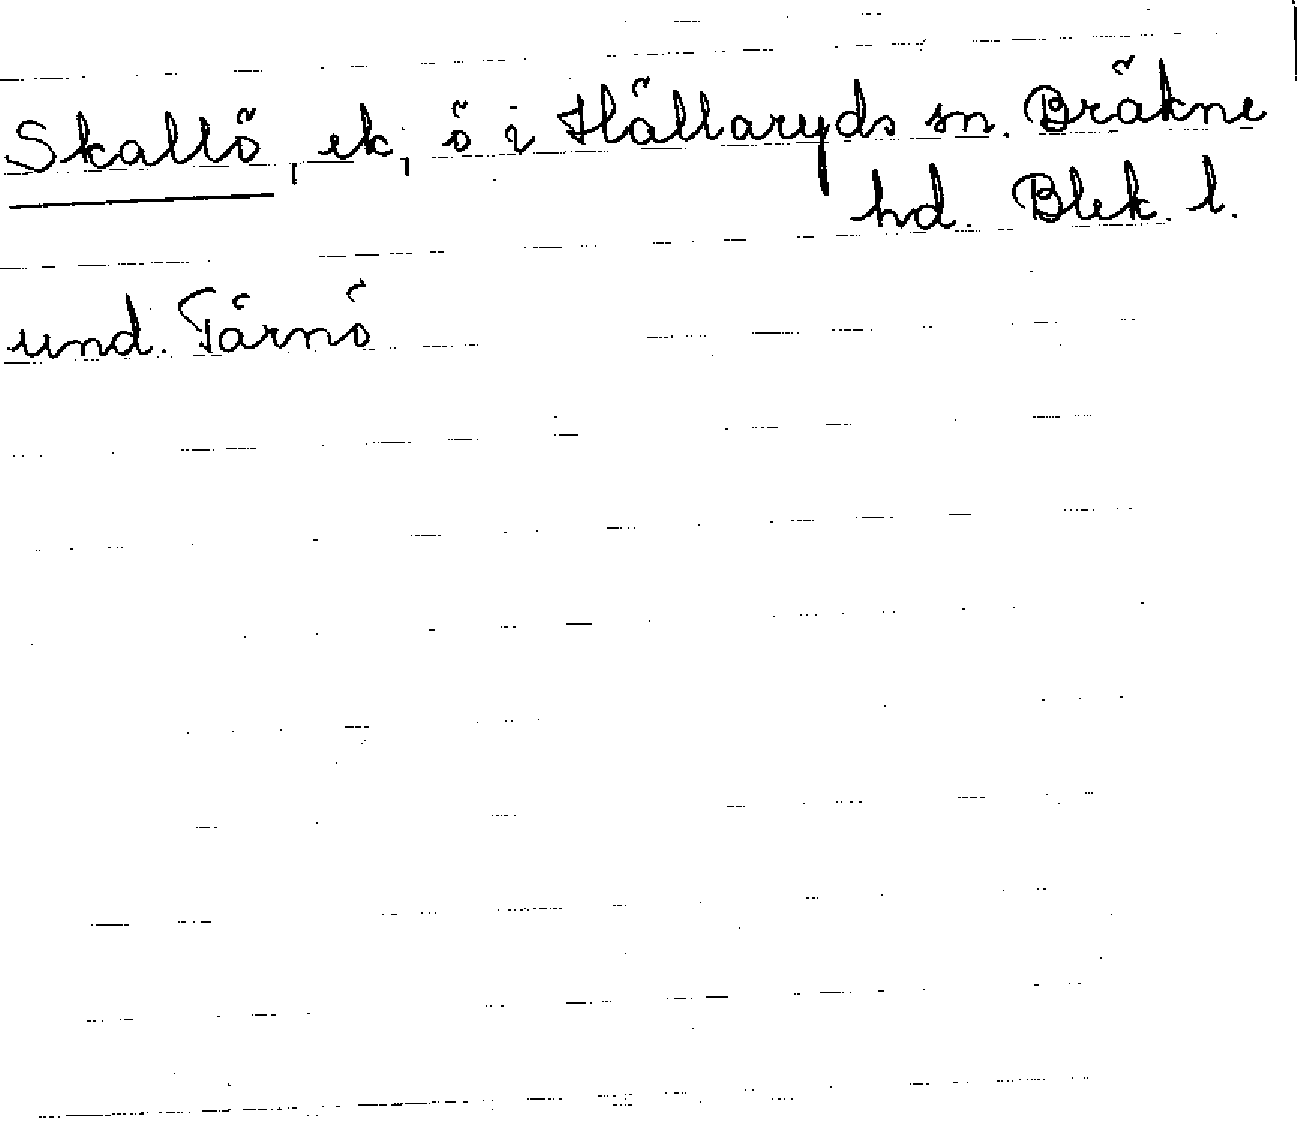 Skallö, ek, ö i Hällaryds sn. Bräkne
hd. Blek. l.
und. Tärnö